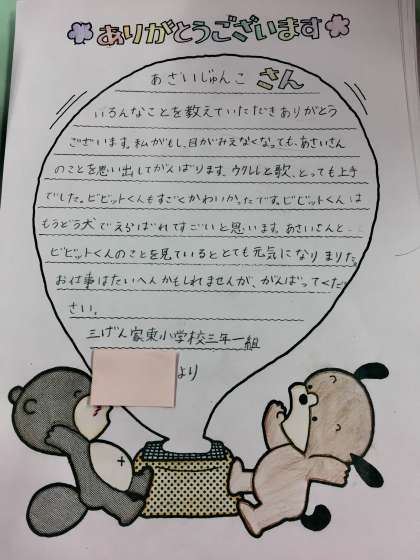 ありがとうございます
あさいじゅんこ さん
いろんなことを教えていただきありがとう
ございます。私がもし、目がみえなくなっても、あさいさん
のことを思い出してがんばります。ウクレレと歌、とっても上手
でした。ビビットくんもすごくかわいかったです。ビビットくんは
もうどう犬でえらばれてすごいと思います。あさいさんと、
ビビットくんのことを見ているととても元気になりまりた。
お仕事はたいへんかもしれませんが、がんばってくだ
さい。
三げん家東小学校三年一組
より